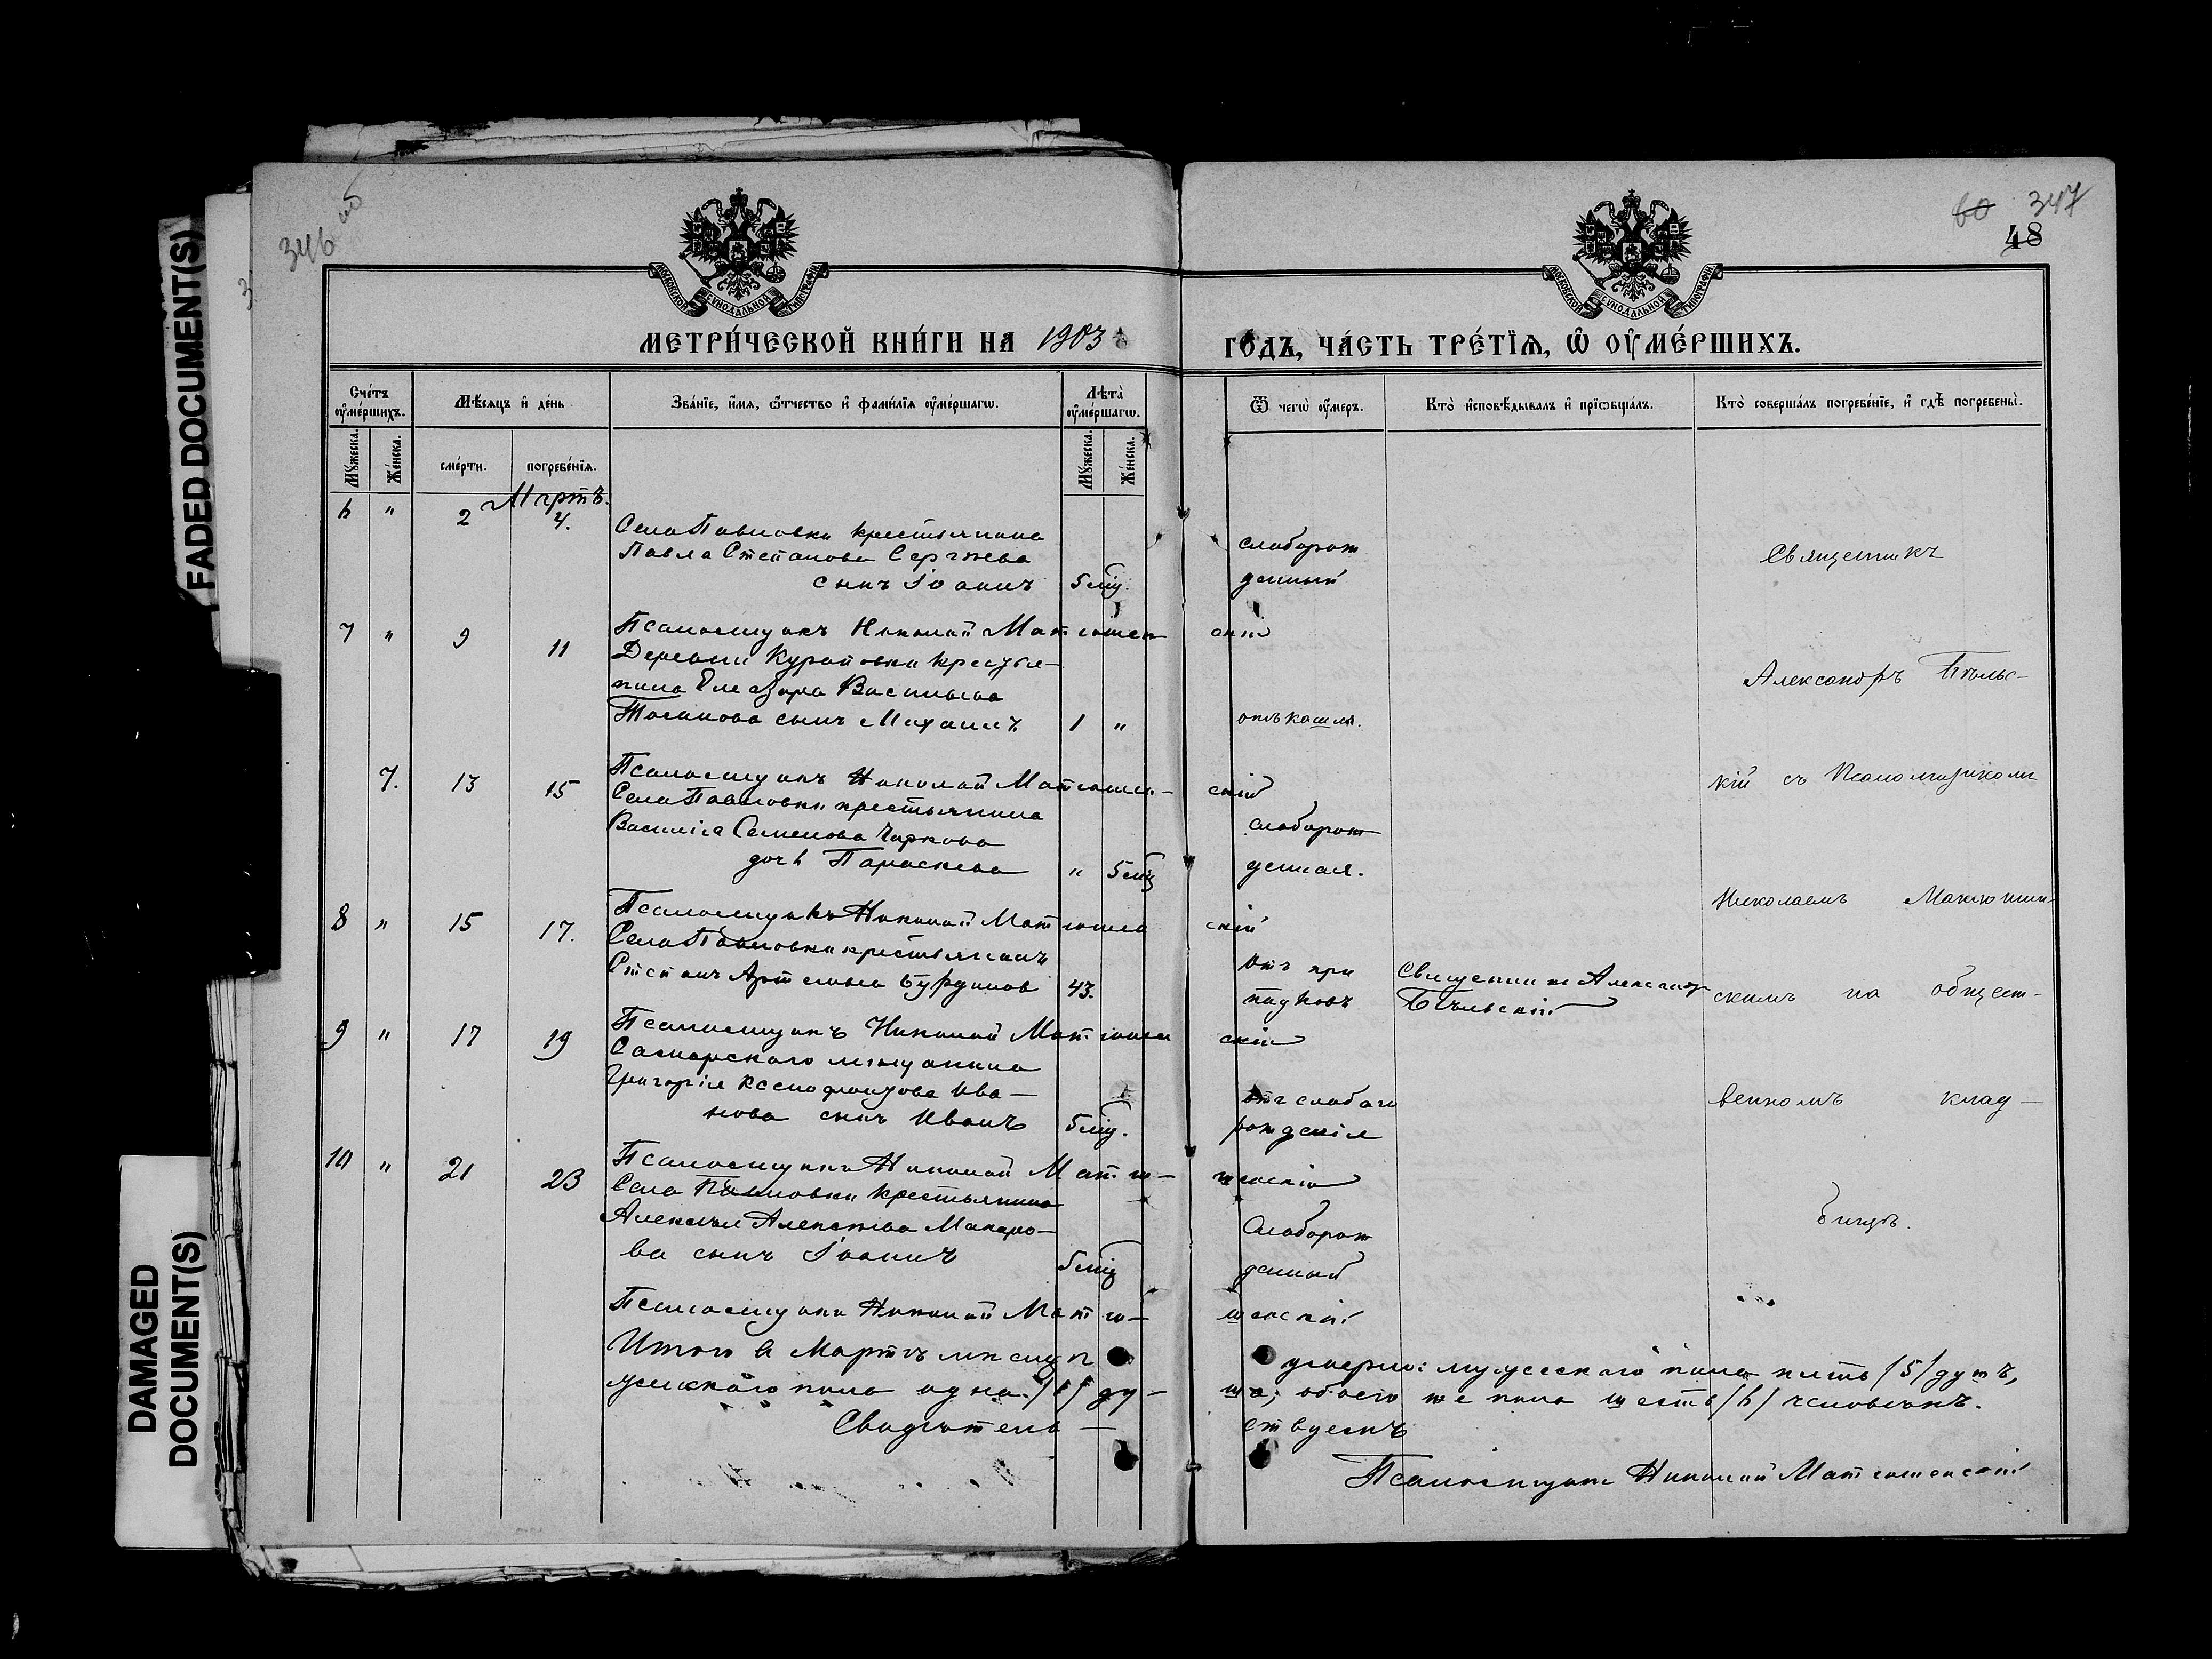 FADED DOCUMENT(S)
DAMAGED DOCUMENT(S)
346
60 347
48
МОСКОВСКОЙ СѴНОДАЛЬНОЙ ТИПОГРАФІИ
МОСКОВСКОЙ СѴНОДАЛЬНОЙ ТИПОГРАФІИ
МЕТРИ́ЧЕСКОЙ КНИ́ГИ НА 1903 ГО́ДЪ, ЧА́СТЬ ТРЕ́ТЇѦ, Ѡ ОУ҆МЕ́РШИХЪ.
Сче́тъ оу҆ме́ршихъ.
Мѣ́сяцъ и҆ де́нь
Зва́нїе, и҆́мя, ѻ҆́тчество и҆ фами́лїя оу҆ме́ршагѡ.
Лѣ́та оу҆ме́ршагѡ.
Ѿ чегѡ̀ оу҆́меръ.
Кто̀ и҆сповѣ́дывалъ и҆ прїѡбща́лъ.
Кто̀ соверша́лъ погребе́нїе, и҆ гдѣ̀ погребены̀.
Мꙋ́жеска.
Же́нска.
сме́рти.
погребе́нїя.
Мꙋ́жеска.
Же́нска.
Мартъ.
6 " 2 4.
Села Павловки крестьянина
Павла Степанова Сергѣева
сынъ Іоаннъ 5 мѣц.
слаборож
денный
Священникъ
7 " 9 11
Псаломщикъ Николай Матюшен скій
Деревни Куроповки крестья-
нина Елеазара Васильева
Толкнова сынъ Михаилъ 1 "
отъ кашля.
Александръ Бѣльс-
7. 13 15
Псаломщикъ Николай Матюшен- скій
Села Павловки крестьянина
Василія Семенова Чаркова
дочь Параскева " 5 мѣц
слаборож
денная.
кій съ Псаломщикомъ
8 " 15 17.
Псаломщикъ Николай Матюшен скій
Села Павловки крестьянинъ
Степанъ Артемьевъ Бурдинов 43.
Отъ при
падковъ
Священникъ Александръ
Бѣльскій
Николаемъ Матюшин-
скимъ на общест-
9 " 17 19
Псаломщикъ Николай Матюшен скій
Самарскаго мѣщанина
Григорія Ксенофонтова Ива-
нова сынъ Иванъ 5 мѣц.
отъ слабаго
рожденія
венномъ клад-
10 " 21 23
Псаломщикъ Николай Матю- шенскій
Села Павловки крестьянина
Алексѣя Алексѣева Макаро-
ва сынъ Іоаннъ 5 мѣц
Слаборож
денный
бищѣ.
Псаломщикъ Николай Матю- шенскій
Итого въ Мартѣ мѣсяцѣ умерло: мужескаго пола пять /5/ душъ,
женскаго пола одна /1/ ду- ша; обоего же пола шесть /6/ человѣкъ.
Свидѣтель- ствуемъ
Псаломщикъ Николай Матюшенскій